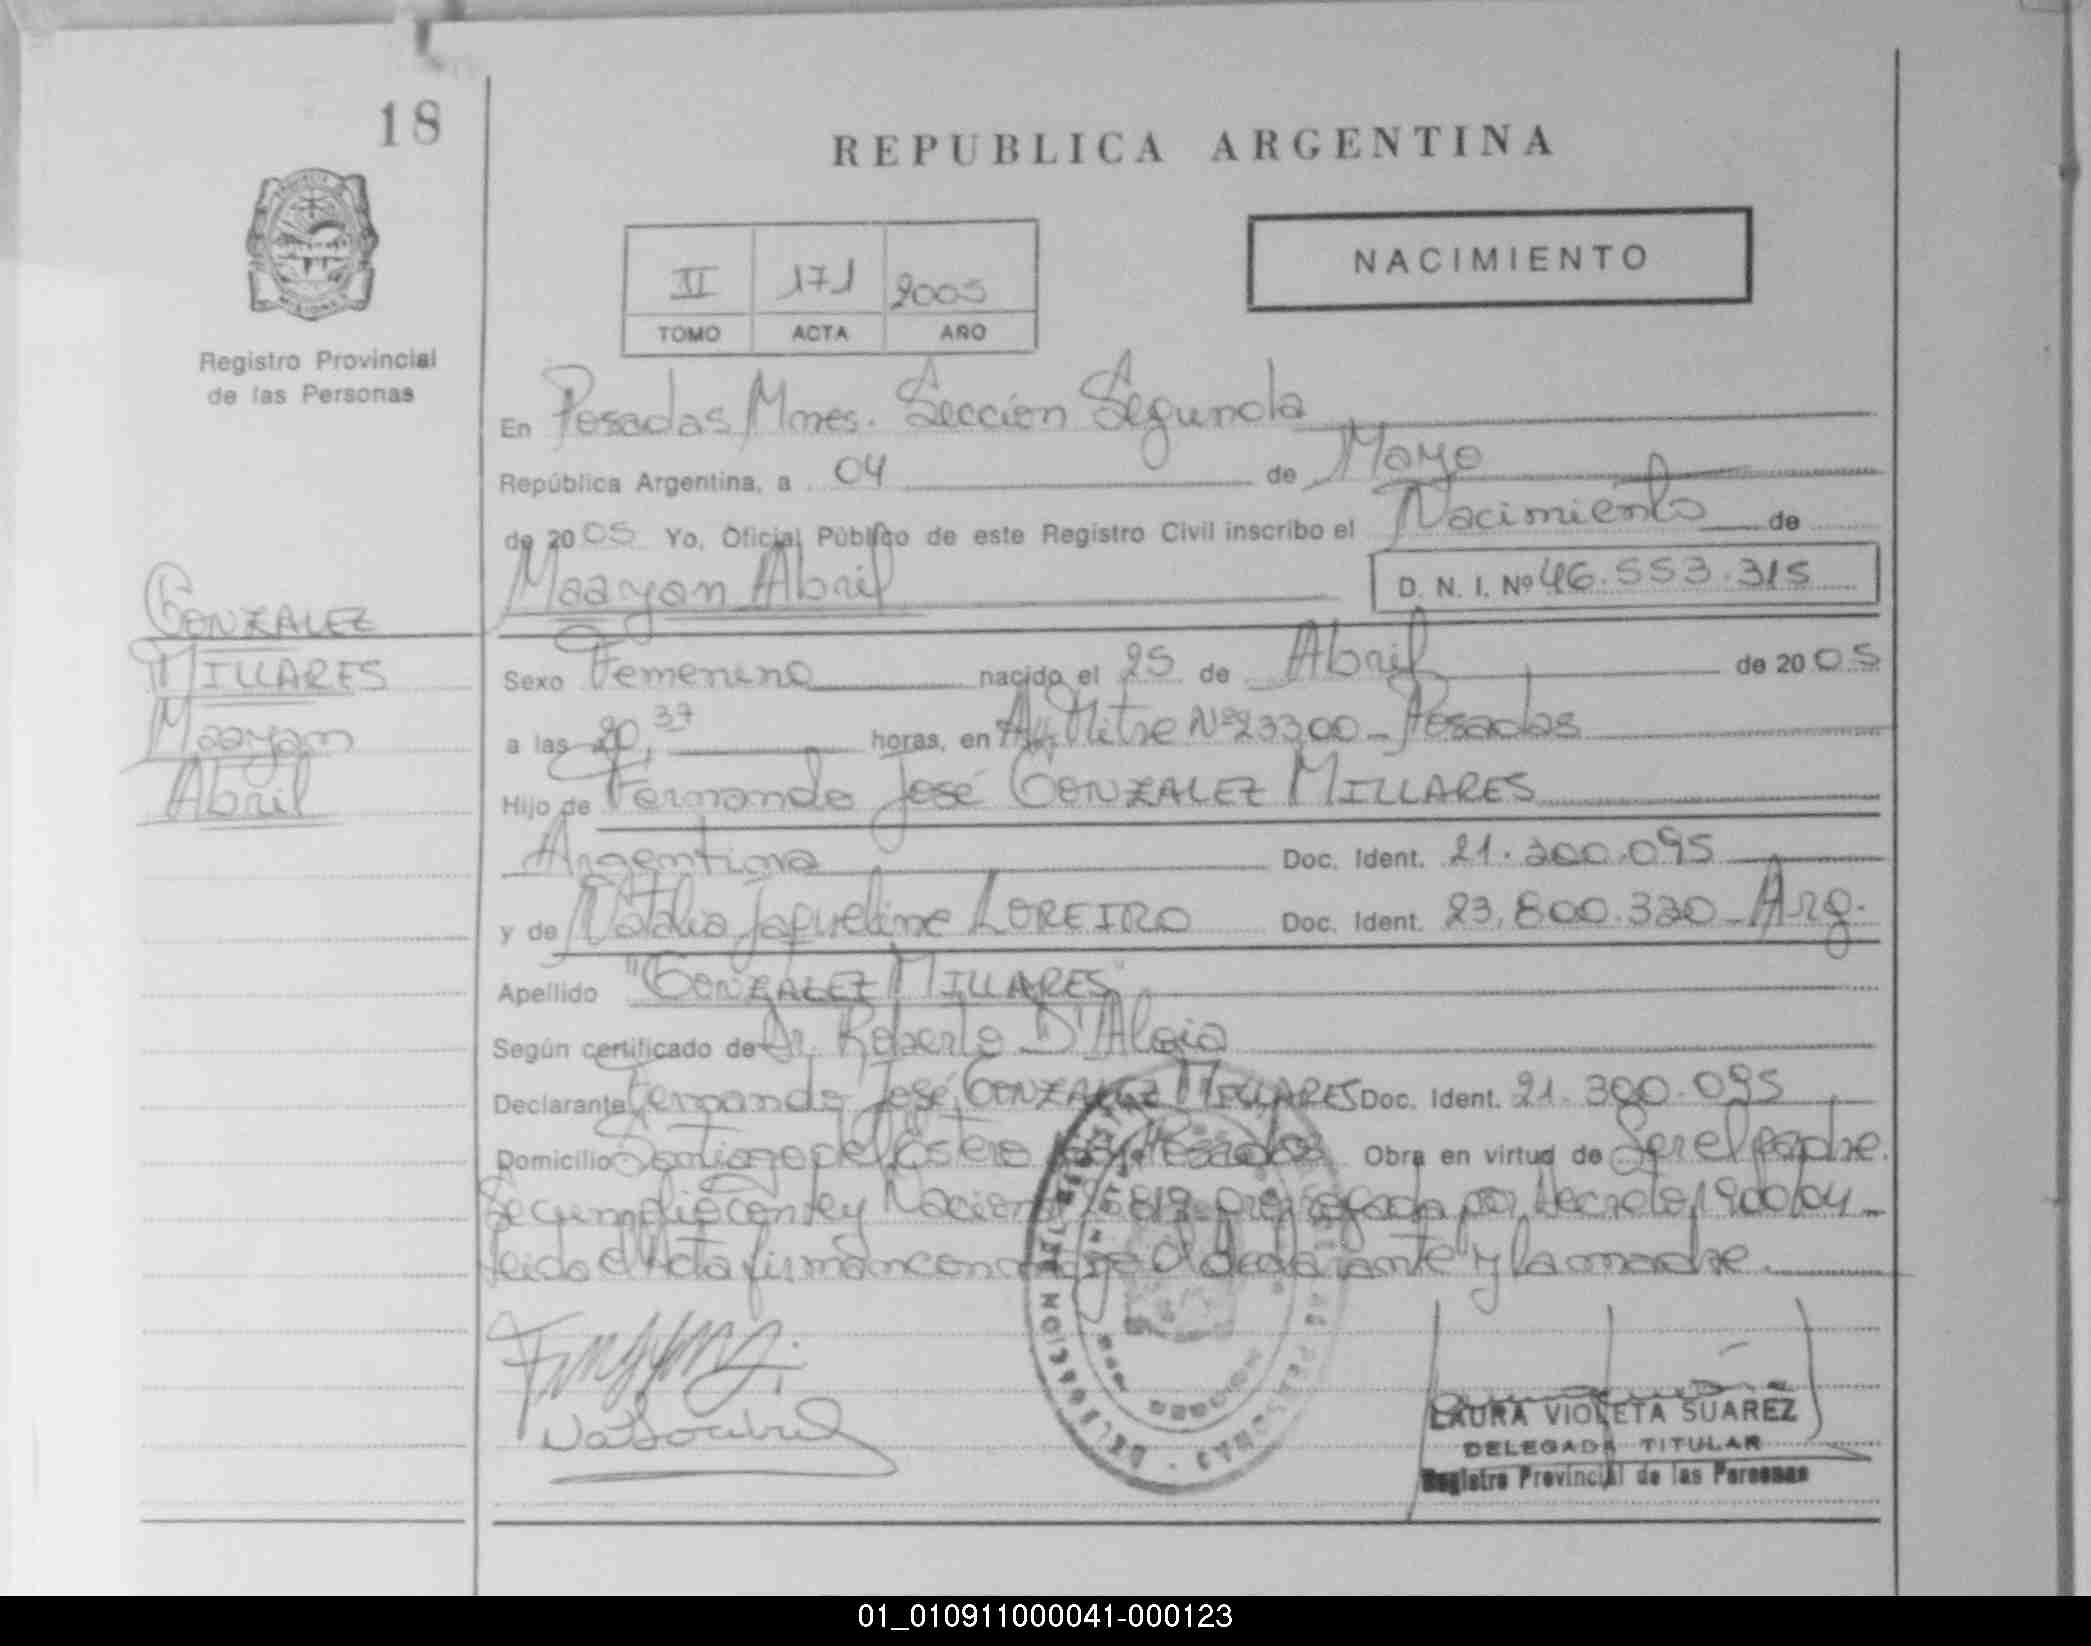 18
REPUBLICA ARGENTINA
NACIMIENTO
II 171 2005
TOMO ACTA AÑO
Registro Provincial
de las Personas
En Posadas Mnes. Sección Segunda
República Argentina, a 04 de Mayo
de 2005 Yo, Oficial Público de este Registro Civil inscribo el Nacimiento de
Maayan Abril D. N. I. Nº 46.553.315
GONZALEZ
MILLARES
Maayan
Abril
Sexo Femenino nacido el 25 de Abril de 2005
a las 20,37 horas, en Av. Mitre Nº 2300 - Posadas
Hijo de Fernando José GONZALEZ MILLARES
Argentina Doc. Ident. 21.300.095
y de Natalia Jaqueline LOREIRO Doc. Ident. 23.800.330 - Arg.
Apellido "GONZALEZ MILLARES"
Según certificado de Dr. Roberto D'Aloia
Declarante Fernando José GONZALEZ MILLARES Doc. Ident. 21.300.095
Domicilio Santiago del Estero Posadas Obra en virtud de Ser el padre.
Se cumplió con ley Nacional 25.819 prorrogada por decreto 1900/04 -
leida el Acta firman conmigo el declarante y la madre
LAURA VIOLETA SUAREZ
DELEGADA TITULAR
Registro Provincial de las Personas
01_010911000041-000123